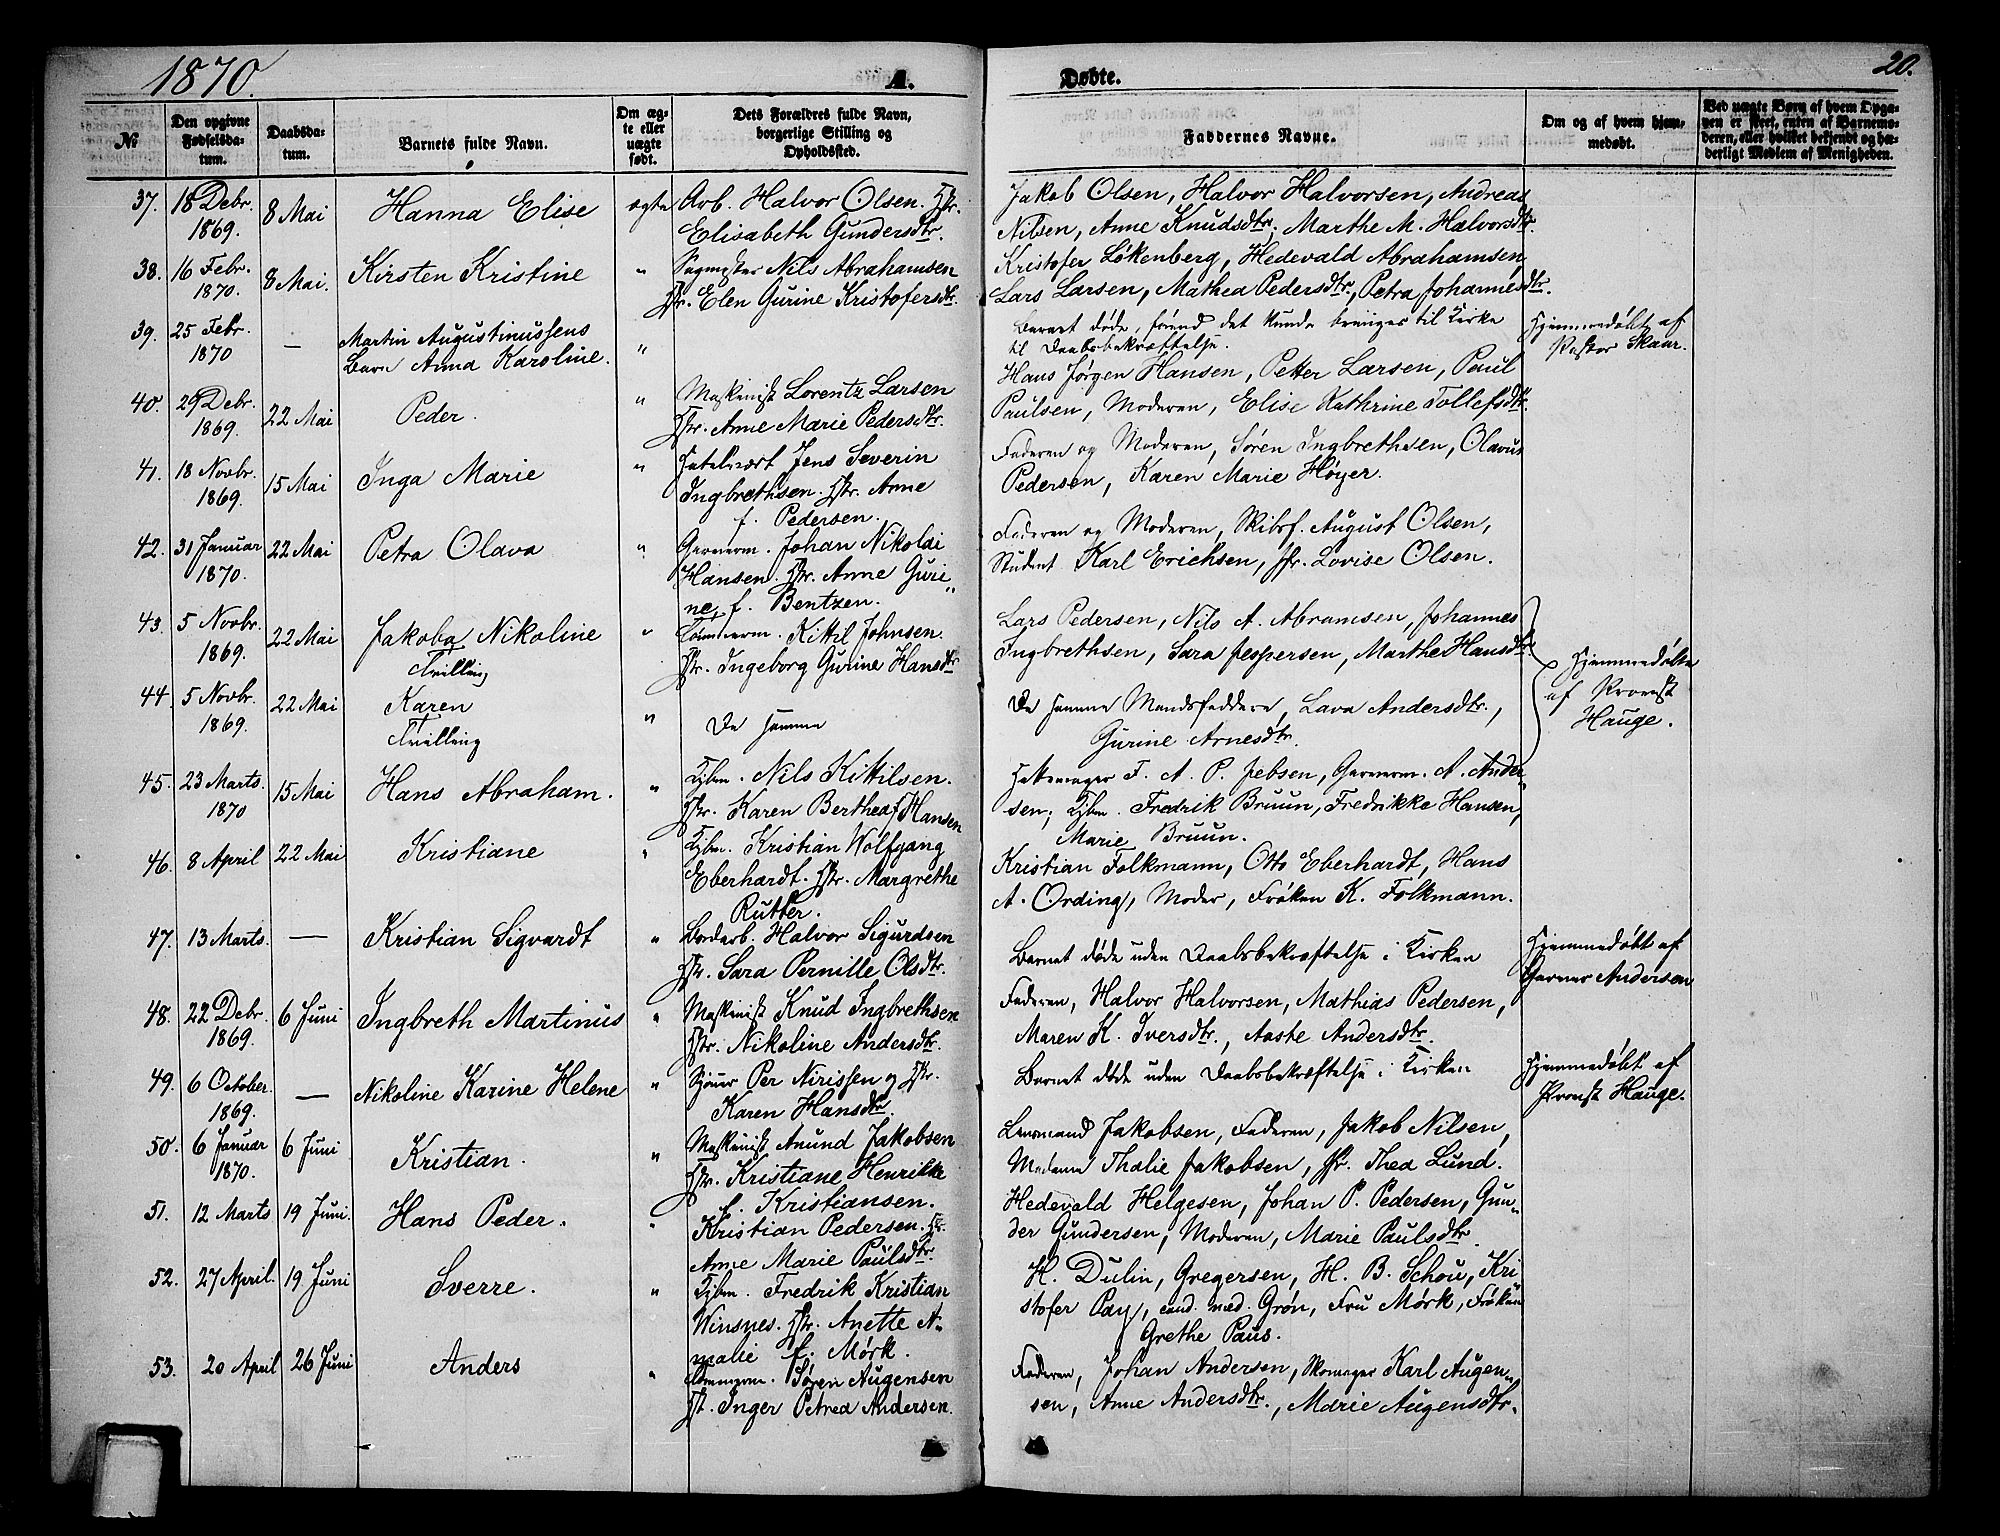 1870.
A.
Døbte.
20.
№
Den opgivne Fødselsdatum.
Daabsdatum.
Barnets fulde Navn.
Om ægte eller uægte født.
Dets Forældres fulde Navn, borgerlige Stilling og Opholdssted.
Faddernes Navne.
Om og af hvem hjemmedøbt.
Ved uægte Børn af hvem Opgaven er skeet, enten af Barnemoderen, eller hvilket bekjendt og hæderligt Medlem af Menigheden.
37. 18 Debr. 1869. 8 Mai Hanna Elise ægte Arb. Halvor Olsen. Hstr.
Elisabeth Gundersdtr.
Jakob Olsen, Halvor Halvorsen, Andreas
Nilsen, Anne Knudsdtr. Marthe M. Halvorsdtr.
38. 16 Febr. 1870. 8 Mai. Kirsten Kristine " Sagmester Nils Abrahamsen
Hstr. Elen Gurine Kristofersdtr.
Kristofer Løkenberg, Hedevald Abrahamsen,
Lars Larsen, Mathea Pedersdtr., Petra Johannesdtr.
39. 25 Febr. 1870 — Martin Augustinussens
Barn Anna Karoline. "
Barnet døde, førend det kunde bringes til Kirke
til Daabsbekræftelse.
Hjemmedøbt af
Pastor Skaar.
40. 29 Debr. 1869. 22 Mai Peder. " Maskinist Lorentz Larsen
Hstr. Anne Marie Pedersdtr.
Hans Jørgen Hansen, Petter Larsen, Paul
Paulsen, Moderen, Elise Kathrine Tollefsdtr.
41. 18 Novbr. 1869. 15 Mai Inga Marie " Jens Severin
Ingbrethsen. Hstr. Anne
f. Pedersen.
Faderen og Moderen, Søren Ingbrethsen, Olavus
Pedersen, Karen Marie Høyer.
42. 31 Januar 1870. 22 Mai Petra Olava " Garverm. Johan Nikolai
Hansen. Hstr. Anne Guri„
ne, f. Bentzen.
Faderen og Moderen, Skibsf. August Olsen,
Student Karl Erichsen, Jfr. Lovise Olsen.
43. 5 Novbr. 1869. 22 Mai Jakoba Nikoline
Tvilling " Tømmerm. Kittil Johnsen.
Hstr. Ingeborg Gurine Hansdtr.
Lars Pedersen, Nils A. Abramsen, Johannes
Ingbrethsen, Sara Jespersen, Marthe Hansdtr.
Hjemmedøbte
af Provst
Hauge.
44. 5 Novbr. 1869. 22 Mai Karen
Tvilling " De samme
De samme Mandsfaddere, Lava Andersdtr.,
Gurine Arnesdtr.
45. 23 Marts. 1870 15 Mai Hans Abraham. " Tjbm. Nils Kittilsen.
Hstr. Karen Berthea f. Hansen
Hattemager F. A. P. Jebsen, Garverm. A. Ander„
sen; Tjbm. Fredrik Bruun, Fredrikke Hansen,
Marie Bruun.
46. 8 April 22 Mai Kristiane " Tjbm. Kristian Wolfgang
Eberhardt. Hstr. Margrethe
Rutter.
Kristian Folkmann, Otto Eberhardt, Hans
A. Ording, Moder, Frøken K. Folkmann.
47. 13 Marts. — Kristian Sigvardt " Bordarb. Halvor Sigurdsen
Hstr. Sara Pernille Olsdtr.
Barnet døde uden Daabsbekræftelse i Kirken
Hjemmedøbt af
Garver Andersen
48. 22 Debr. 1869. 6 Juni Ingbreth Martinus " Maskinist Knud Ingbrethsen
Hstr. Nikoline Andersdtr.
Faderen, Halvor Halvorsen, Mathias Pedersen,
Maren K. Iversdtr., Aaste Andersdtr.
49. 6 October. 1869. — Nikoline Karine Helene " Per Nirissen og Hstr.
Karen Hansdtr.
Barnet døde uden Daabsbekræftelse i Kirken
Hjemmedøbt af
Provst Hauge.
50. 6 Januar 1870. 6 Juni Kristian. " Maskinist Anund Jakobsen
Hstr. Kristiane Henrikke
f. Kristiansen.
Lensmand Jakobsen, Faderen, Jakob Nilsen,
Madame Thalie Jakobsen, Jfr. Thea Lund.
51. 12 Marts 19 Juni. Hans Peder. " Kristian Pedersen. Hstr.
Anne Marie Paulsdtr.
Hedevald Helgesen, Johan P. Pedersen, Gun„
der Gundersen, Moderen, Marie Paulsdtr.
52. 27 April. 19 Juni Sverre. " Tjbm. Fredrik Kristian
Winsnes. Hstr. Anette A„
malie f. Mørk.
H. Dulin, Gregersen, H. B. Schou, Kri„
stofer Pay, cand. med. Grøn, Fru Mørk, Frøken
Grethe Paus.
53. 20 April 26 Juni Anders " Tømmerm. Søren Augensen
Hst. Inger Petrea Andersen.
Faderen, Johan Andersen, Skomager Karl Augen„
sen, Anne Andersdtr., Marie Augensdtr.